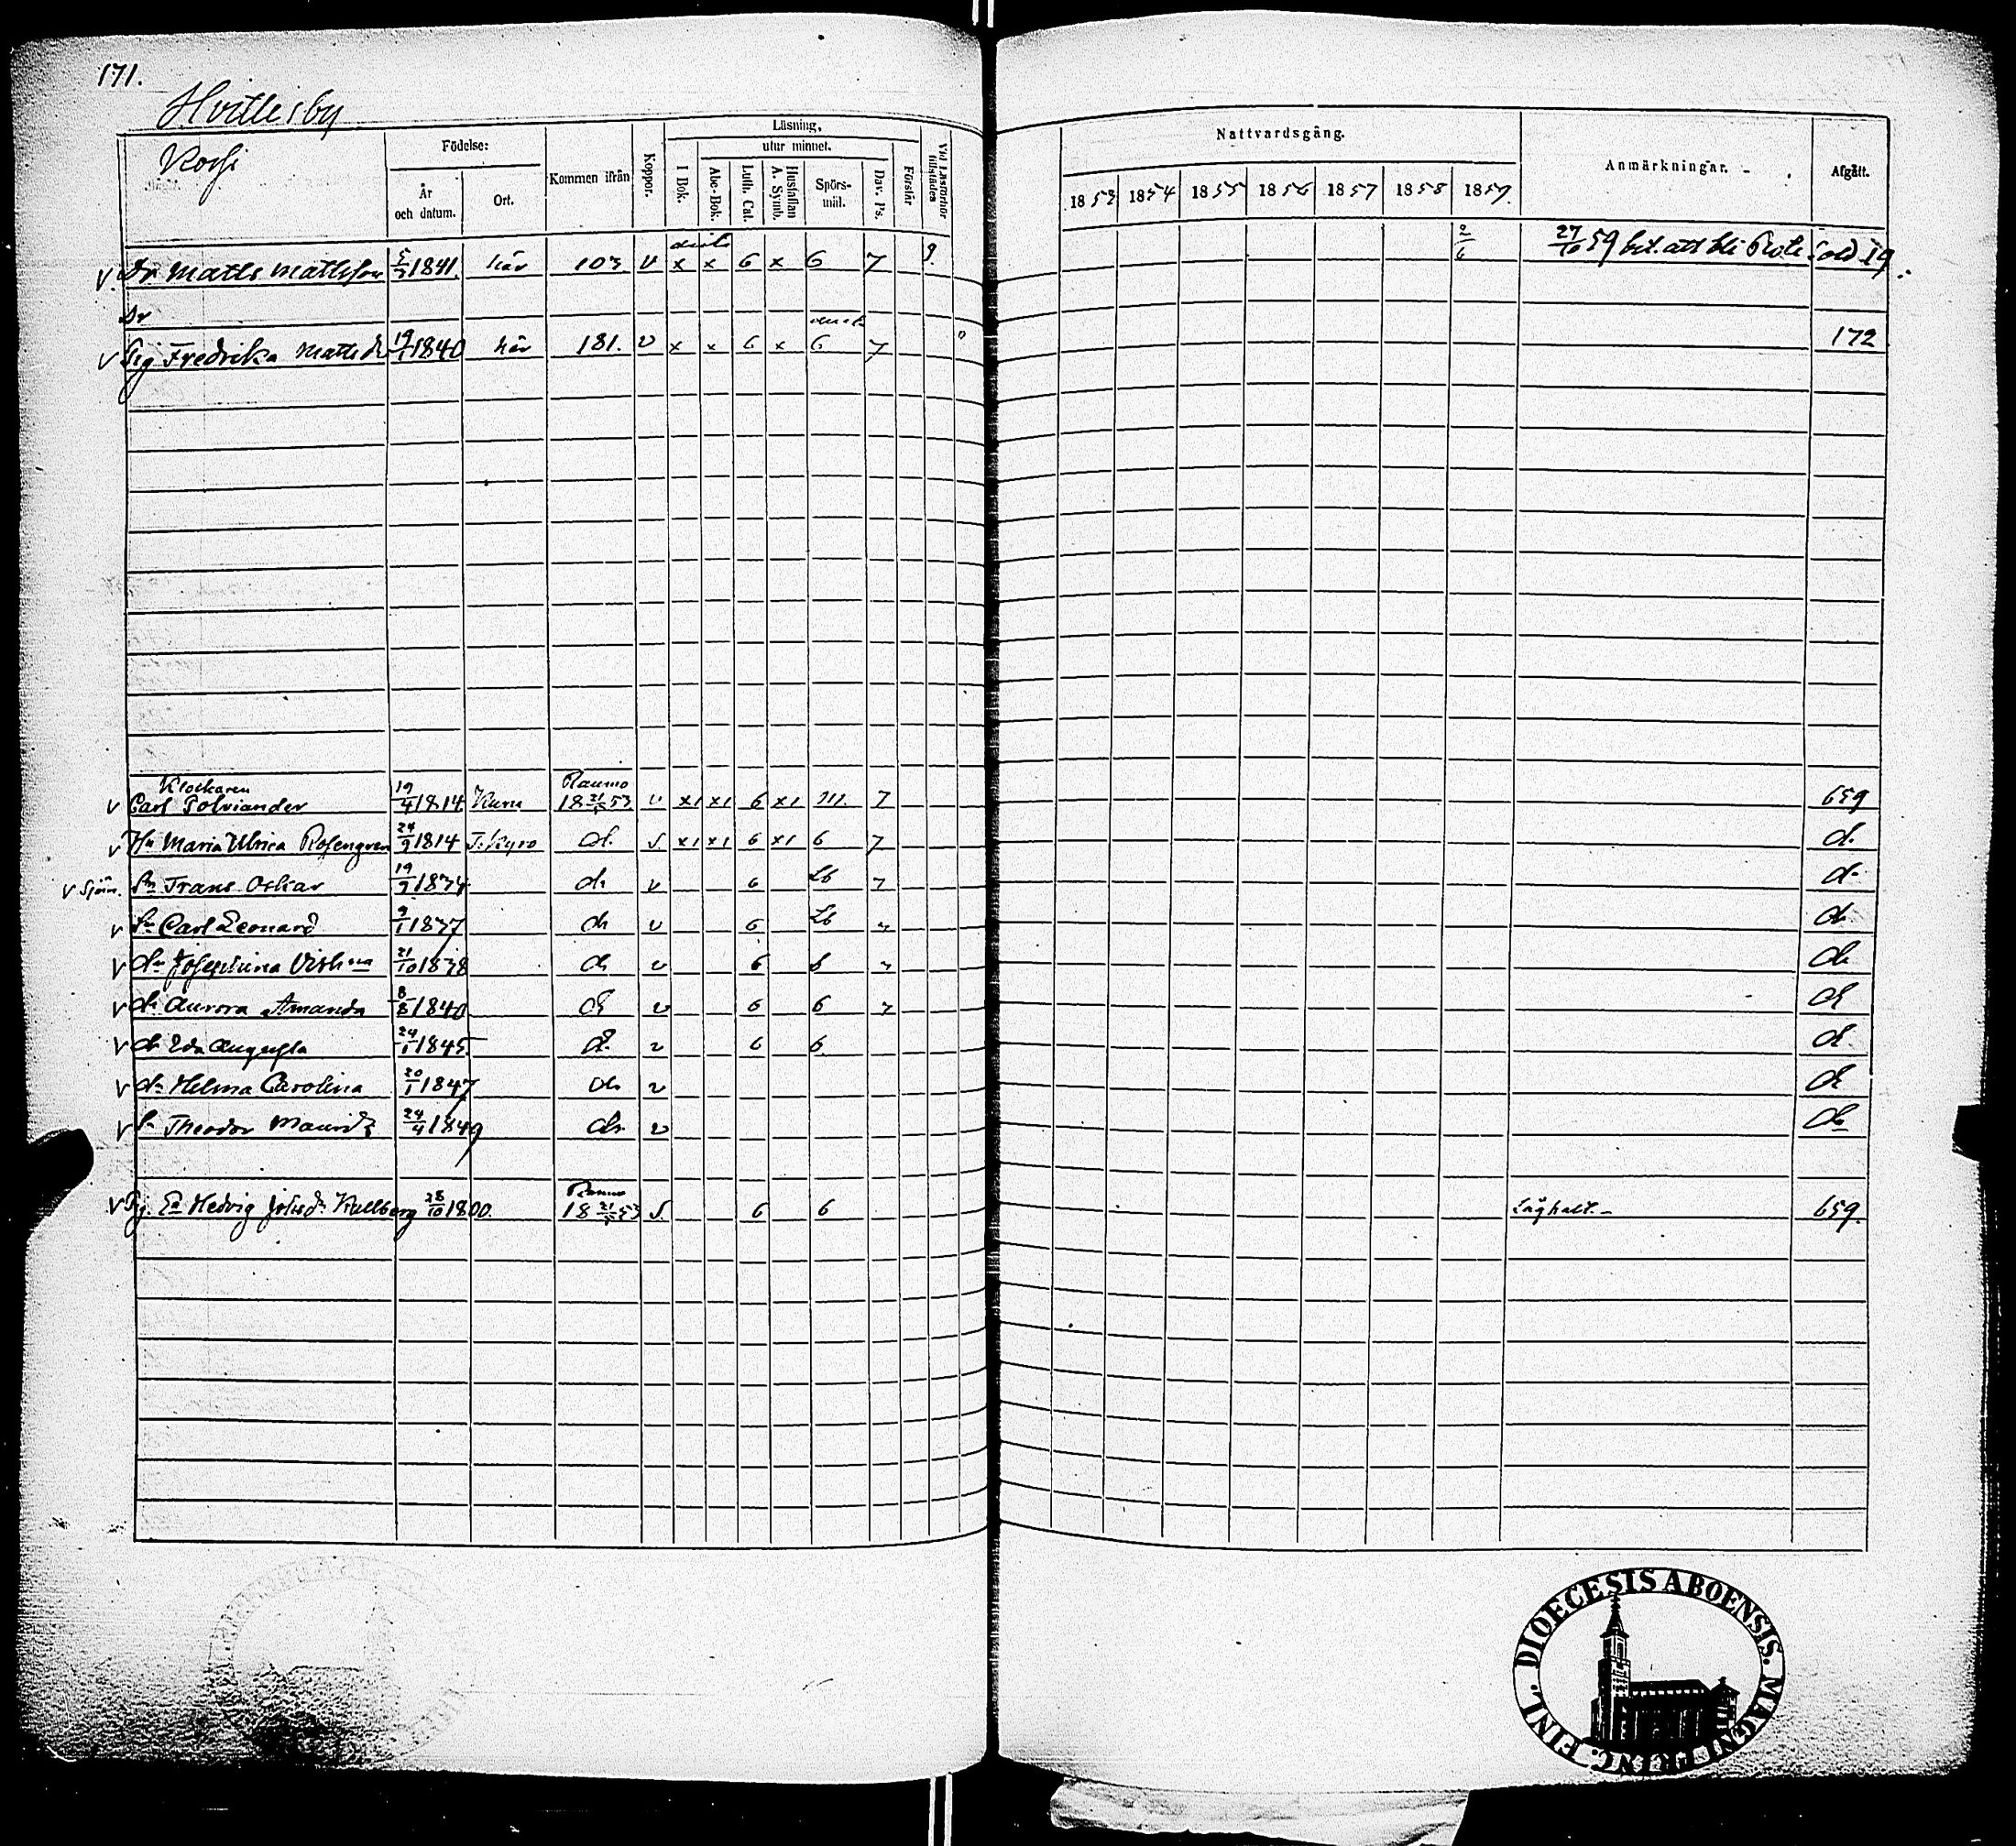 171.
Hvittisby
Födelse: Kommen ifrån Koppor. Läsning, utur minnet. I Bok. Abc-Bok. Luth. Cat. Hustaflan A. Symb. Spörsmål. Dav. Ps. Förstår Vid Läsförhör tillstädes Nattvardsgång. Anmärkningar. Afgått.
År och datum. Ort. 1853 1854 1855 1856 1857 1858 1859
V. Dr Matts Mattsson 5/3 1841. här 103 v x x 6 x 6 7 9. 2/6 27/10 59 bet. att bli Rote Sold 19.
Dr
V Pig Fredrika Mattsdr 19/1 1840 här 181. v x x 6 x 6 7 172
Klockaren Raumo
V Carl Polviander 19/4 1814 Kuru 18 21/5 53 v x1 x1 6 x1 7 659
V Hu Maria Ulrica Rosengren 24/9 1814 T. Kyro d. x1 x1 6 x1 6 7 d.
V Sjöm. Sn Frans Oskar 19/9 1834 d. v 6 Lb 7 d.
V Sn Carl Leonard 9/1 1837 d. v 6 Lb 7 d.
V dr Josephina Vilhna 21/10 1838 d. v 6 6 7 d.
V dr Aurora Amanda 8/8 1840 d. v 6 6 7 d.
V dr Eda Augusta 24/1 1845 d. v 6 6 d.
V dr Helma Carolina 20/1 1847 d. v d.
V Sn Theodor Mauridz 24/4 1849 d. v d.
Raumo
V Pig. Ea Hedvig Johsdr Kullberg 28/10 1800. 18 21/5 53 6 6 låghalt.- 659.
FINL. DIOECESIS ABOENSIS. MAGNI PRINC.